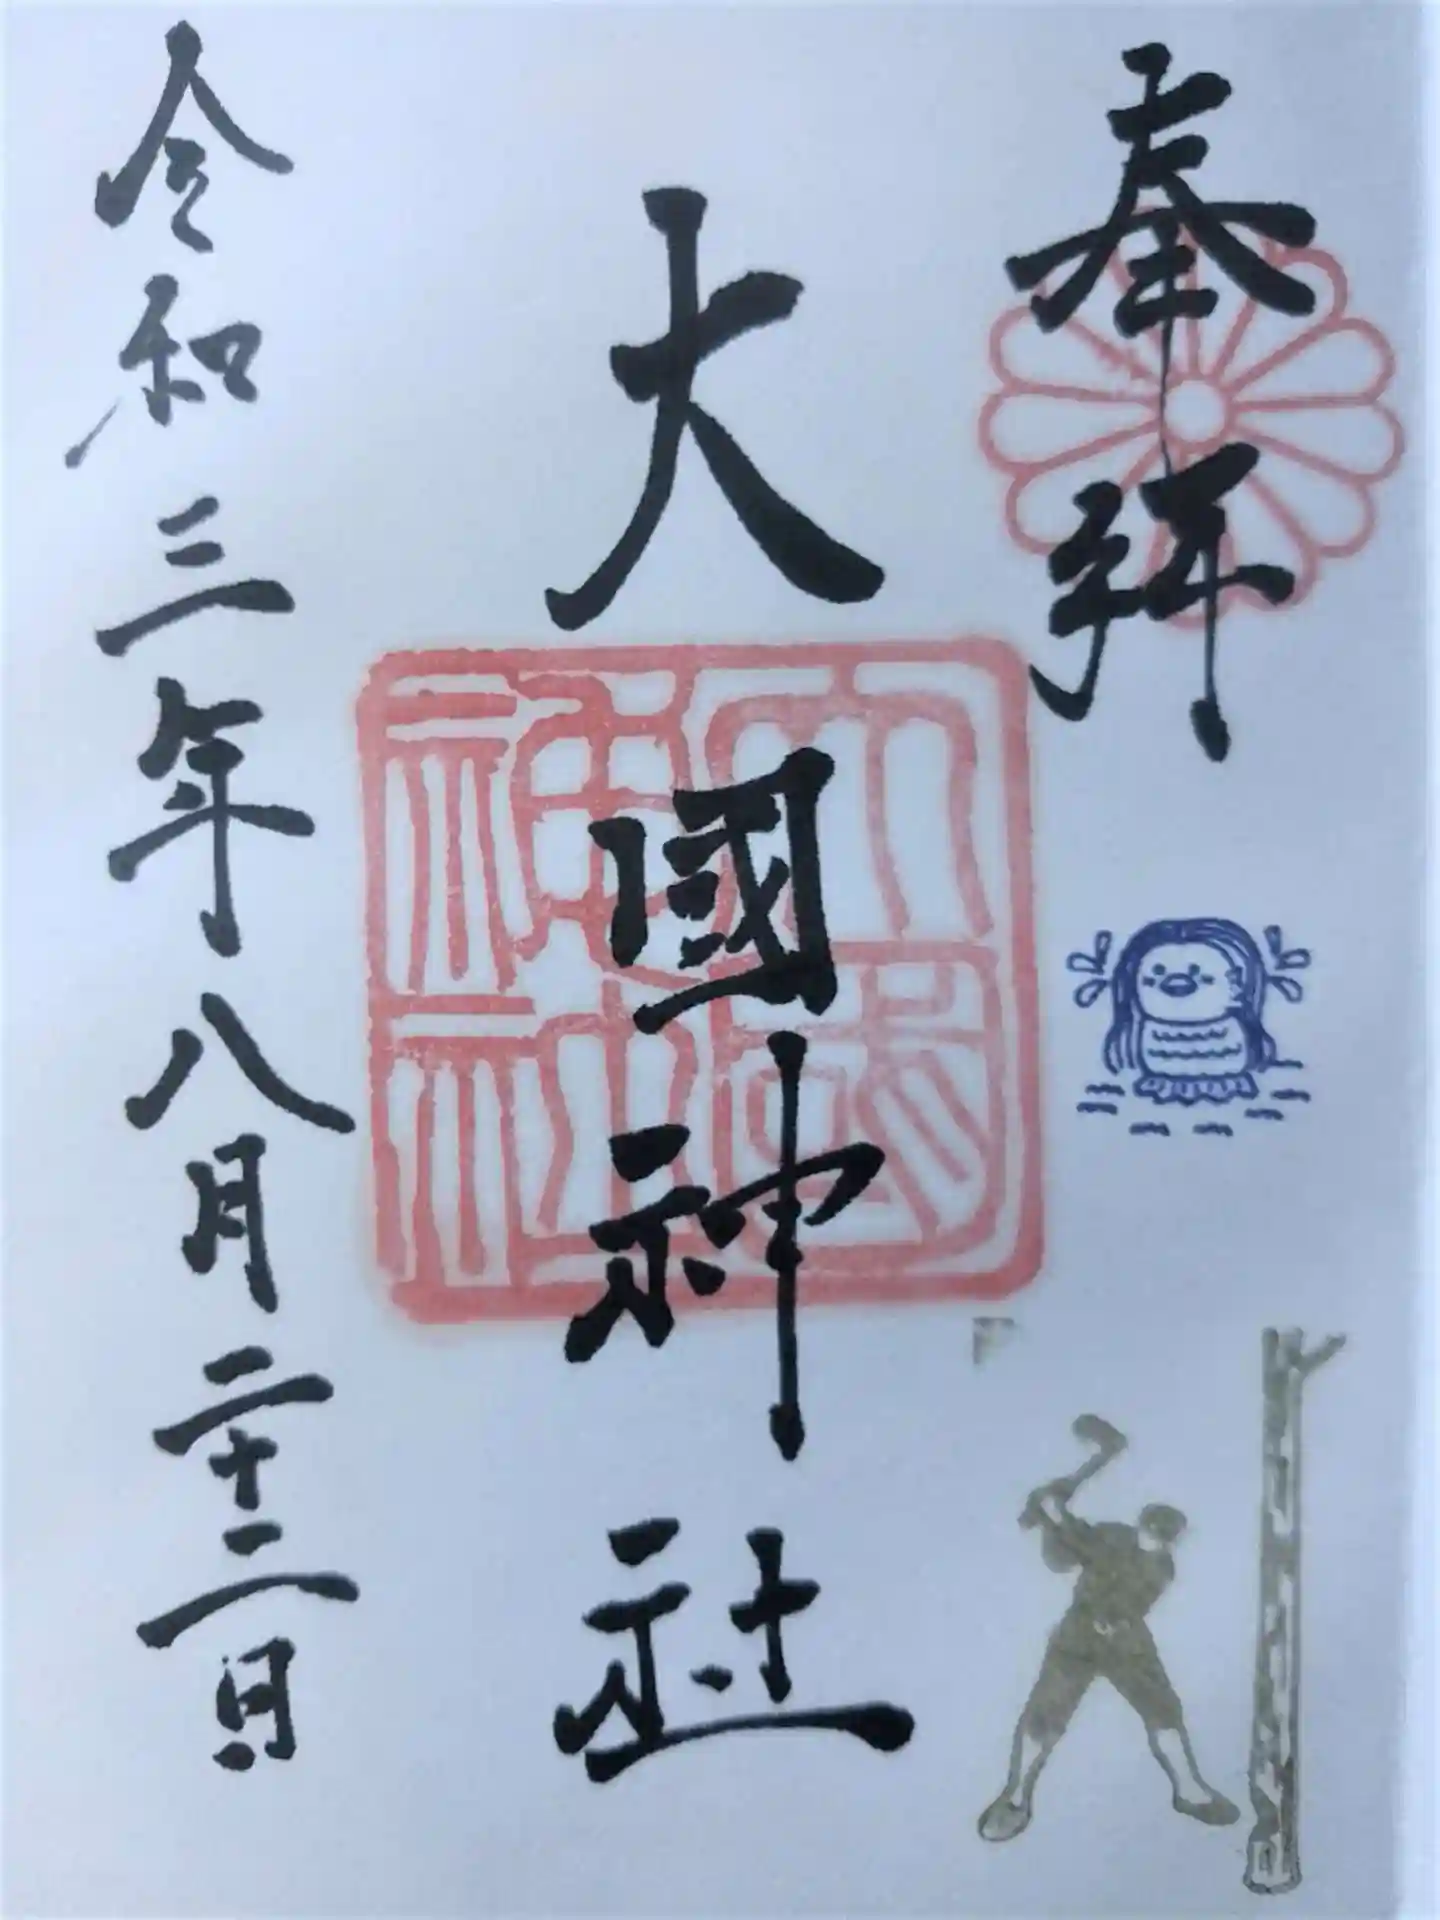 奉拝
大國神社
大國神社
令和三年八月二十二日